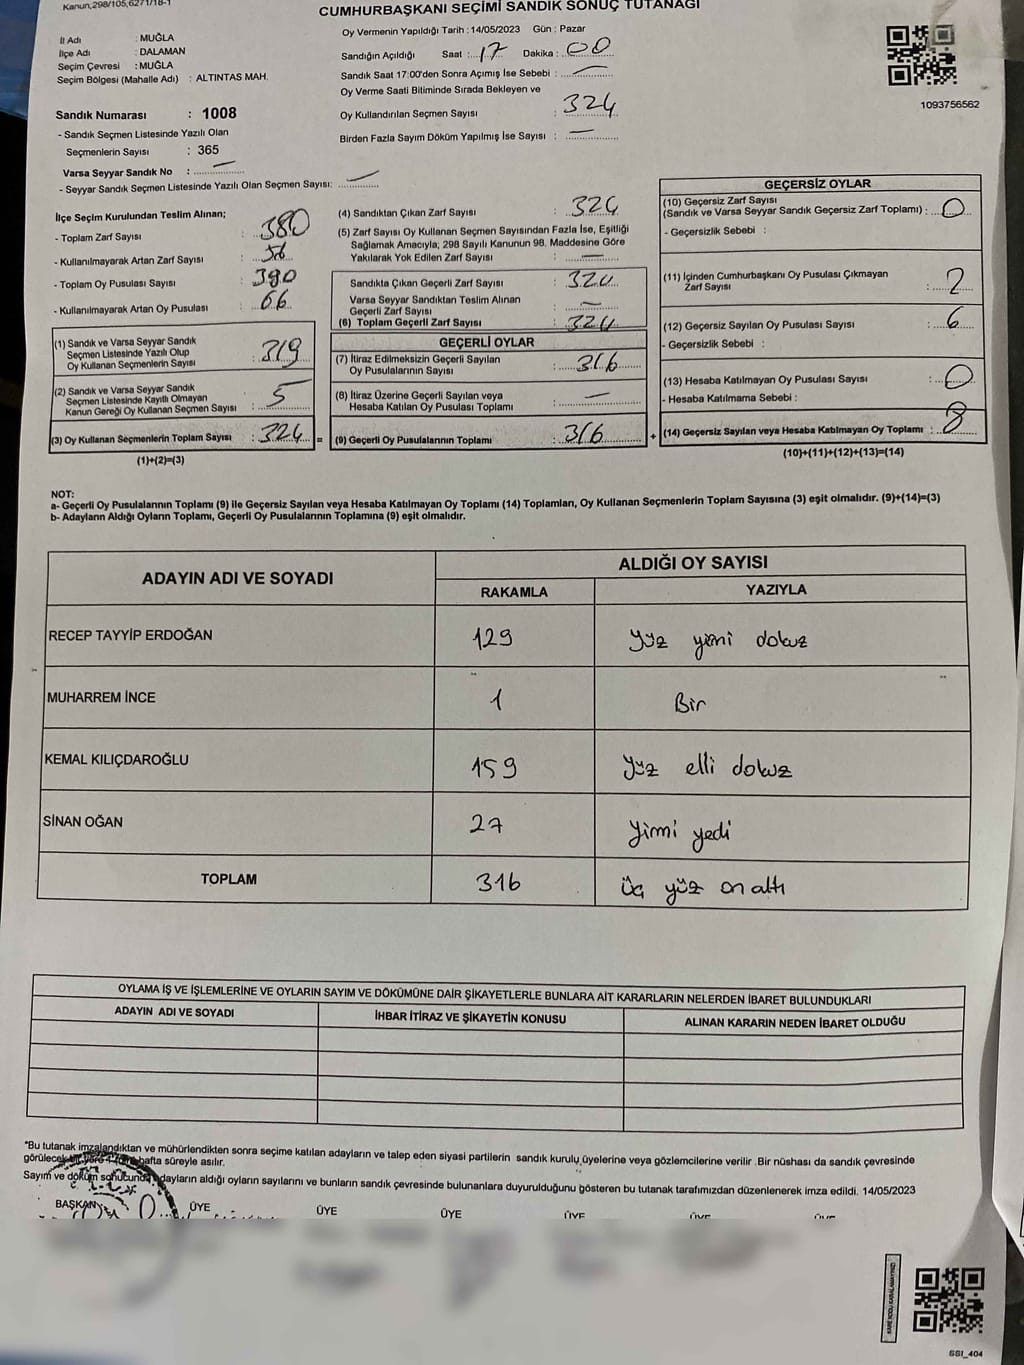 Kanun,298/105,6271/18-1
CUMHURBAŞKANI SEÇİMİ SANDIK SONUÇ TUTANAĞI
İl Adı : MUĞLA
İlçe Adı : DALAMAN
Seçim Çevresi : MUĞLA
Seçim Bölgesi (Mahalle Adı) : ALTINTAS MAH.
Oy Vermenin Yapıldığı Tarih : 14/05/2023 Gün : Pazar
Sandığın Açıldığı Saat : 17 Dakika : 00
Sandık Saat 17:00'den Sonra Açımış İse Sebebi : —
Oy Verme Saati Bitiminde Sırada Bekleyen ve
Oy Kullandırılan Seçmen Sayısı : 324
Birden Fazla Sayım Döküm Yapılmış İse Sayısı : —
1093756562
Sandık Numarası : 1008
- Sandık Seçmen Listesinde Yazılı Olan
Seçmenlerin Sayısı : 365
Varsa Seyyar Sandık No : —
- Seyyar Sandık Seçmen Listesinde Yazılı Olan Seçmen Sayısı: —
İlçe Seçim Kurulundan Teslim Alınan;
- Toplam Zarf Sayısı : 380
- Kullanılmayarak Artan Zarf Sayısı : 56
- Toplam Oy Pusulası Sayısı : 390
- Kullanılmayarak Artan Oy Pusulası : 66
(1) Sandık ve Varsa Seyyar Sandık
Seçmen Listesinde Yazılı Olup
Oy Kullanan Seçmenlerin Sayısı : 319
(2) Sandık ve Varsa Seyyar Sandık
Seçmen Listesinde Kayıtlı Olmayan
Kanun Gereği Oy Kullanan Seçmen Sayısı : 5
(3) Oy Kullanan Seçmenlerin Toplam Sayısı : 324 =
(1)+(2)=(3)
(4) Sandıktan Çıkan Zarf Sayısı : 324
(5) Zarf Sayısı Oy Kullanan Seçmen Sayısından Fazla İse, Eşitliği
Sağlamak Amacıyla; 298 Sayılı Kanunun 98. Maddesine Göre
Yakılarak Yok Edilen Zarf Sayısı : —
Sandıkta Çıkan Geçerli Zarf Sayısı : 324
Varsa Seyyar Sandıktan Teslim Alınan
Geçerli Zarf Sayısı : —
(6) Toplam Geçerli Zarf Sayısı : 324
GEÇERLİ OYLAR
(7) İtiraz Edilmeksizin Geçerli Sayılan
Oy Pusulalarının Sayısı : 316
(8) İtiraz Üzerine Geçerli Sayılan veya
Hesaba Katılan Oy Pusulası Toplamı : —
(9) Geçerli Oy Pusulalarının Toplamı : 316 +
GEÇERSİZ OYLAR
(10) Geçersiz Zarf Sayısı
(Sandık ve Varsa Seyyar Sandık Geçersiz Zarf Toplamı) : 0
- Geçersizlik Sebebi :
(11) İçinden Cumhurbaşkanı Oy Pusulası Çıkmayan
Zarf Sayısı : 2
(12) Geçersiz Sayılan Oy Pusulası Sayısı : 6
- Geçersizlik Sebebi :
(13) Hesaba Katılmayan Oy Pusulası Sayısı : 0
- Hesaba Katılmama Sebebi :
(14) Geçersiz Sayılan veya Hesaba Katılmayan Oy Toplamı : 8
(10)+(11)+(12)+(13)=(14)
NOT:
a- Geçerli Oy Pusulalarının Toplamı (9) ile Geçersiz Sayılan veya Hesaba Katılmayan Oy Toplamı (14) Toplamları, Oy Kullanan Seçmenlerin Toplam Sayısına (3) eşit olmalıdır. (9)+(14)=(3)
b- Adayların Aldığı Oyların Toplamı, Geçerli Oy Pusulalarının Toplamına (9) eşit olmalıdır.
ADAYIN ADI VE SOYADI ALDIĞI OY SAYISI
RAKAMLA YAZIYLA
RECEP TAYYİP ERDOĞAN 129 Yüz yirmi dokuz
MUHARREM İNCE 1 Bir
KEMAL KILIÇDAROĞLU 159 Yüz elli dokuz
SİNAN OĞAN 27 Yirmi yedi
TOPLAM 316 üç yüz on altı
OYLAMA İŞ VE İŞLEMLERİNE VE OYLARIN SAYIM VE DÖKÜMÜNE DAİR ŞİKAYETLERLE BUNLARA AİT KARARLARIN NELERDEN İBARET BULUNDUKLARI
ADAYIN ADI VE SOYADI İHBAR İTİRAZ VE ŞİKAYETİN KONUSU ALINAN KARARIN NEDEN İBARET OLDUĞU
*Bu tutanak imzalandıktan ve mühürlendikten sonra seçime katılan adayların ve talep eden siyasi partilerin sandık kurulu üyelerine veya gözlemcilerine verilir .Bir nüshası da sandık çevresinde
görülecek hafta süreyle asılır.
Sayım ve döküm sonucunda adayların aldığı oyların sayılarını ve bunların sandık çevresinde bulunanlara duyurulduğunu gösteren bu tutanak tarafımızdan düzenlenerek imza edildi. 14/05/2023
BAŞKAN ÜYE ÜYE ÜYE ÜYE ÜYE ÜYE
KARE KODU KARALAMAYINIZ!
SSI_404